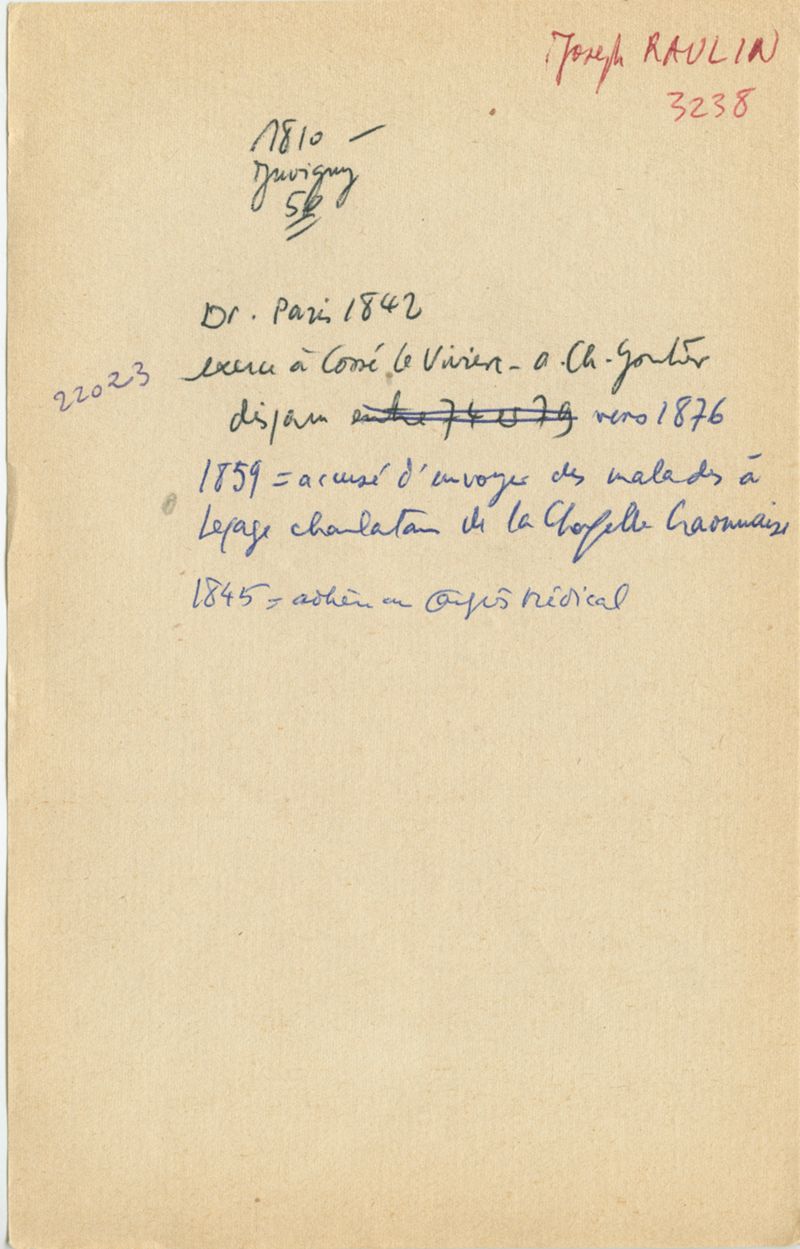 Joseph RAULIN
3238
1810 -
Juvigny
Dr. Paris 1842
exerce à Cossé le Vivien - a Ch-Gontier
22023
disparu entre 74 et 79 vers 1876
1859 = accusé d'envoyer des malades à
Lepage charlatan de la Chapelle Craonnaise
1845 = adhère au Congrès Médical